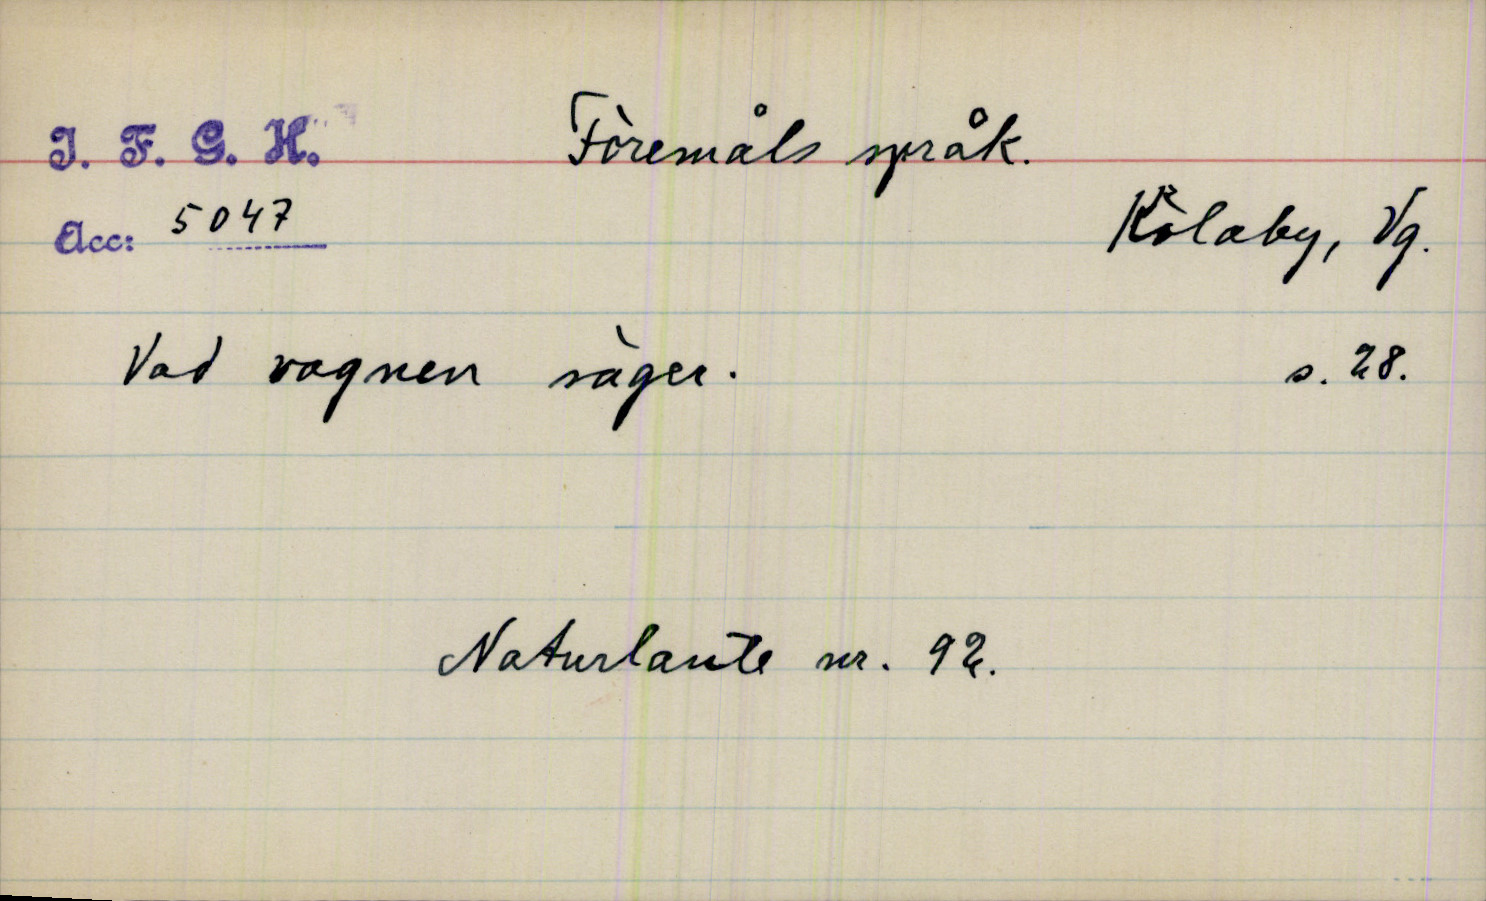 I. F. G. H. Föremåls språk.
Acc: 5047
Kölaby, Vg.
Vad vagnen säger. s. 28.
Naturlaute nr. 92.